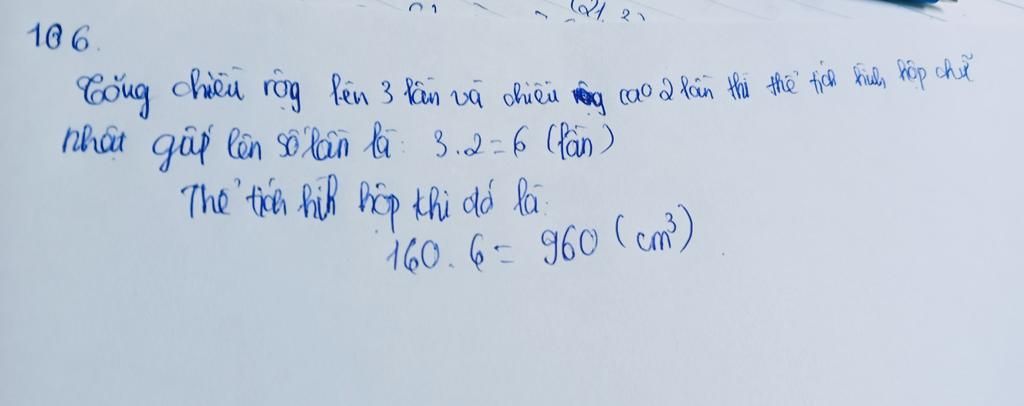 106.
Tăng chiều rộg lên 3 lần và chiều cao 2 lần thì thể tích hình hộp chữ
nhật gấp lên số lần là: 3.2=6 (lần)
Thể tích hìh hộp khi đó là:
160.6 = 960 (cm³)